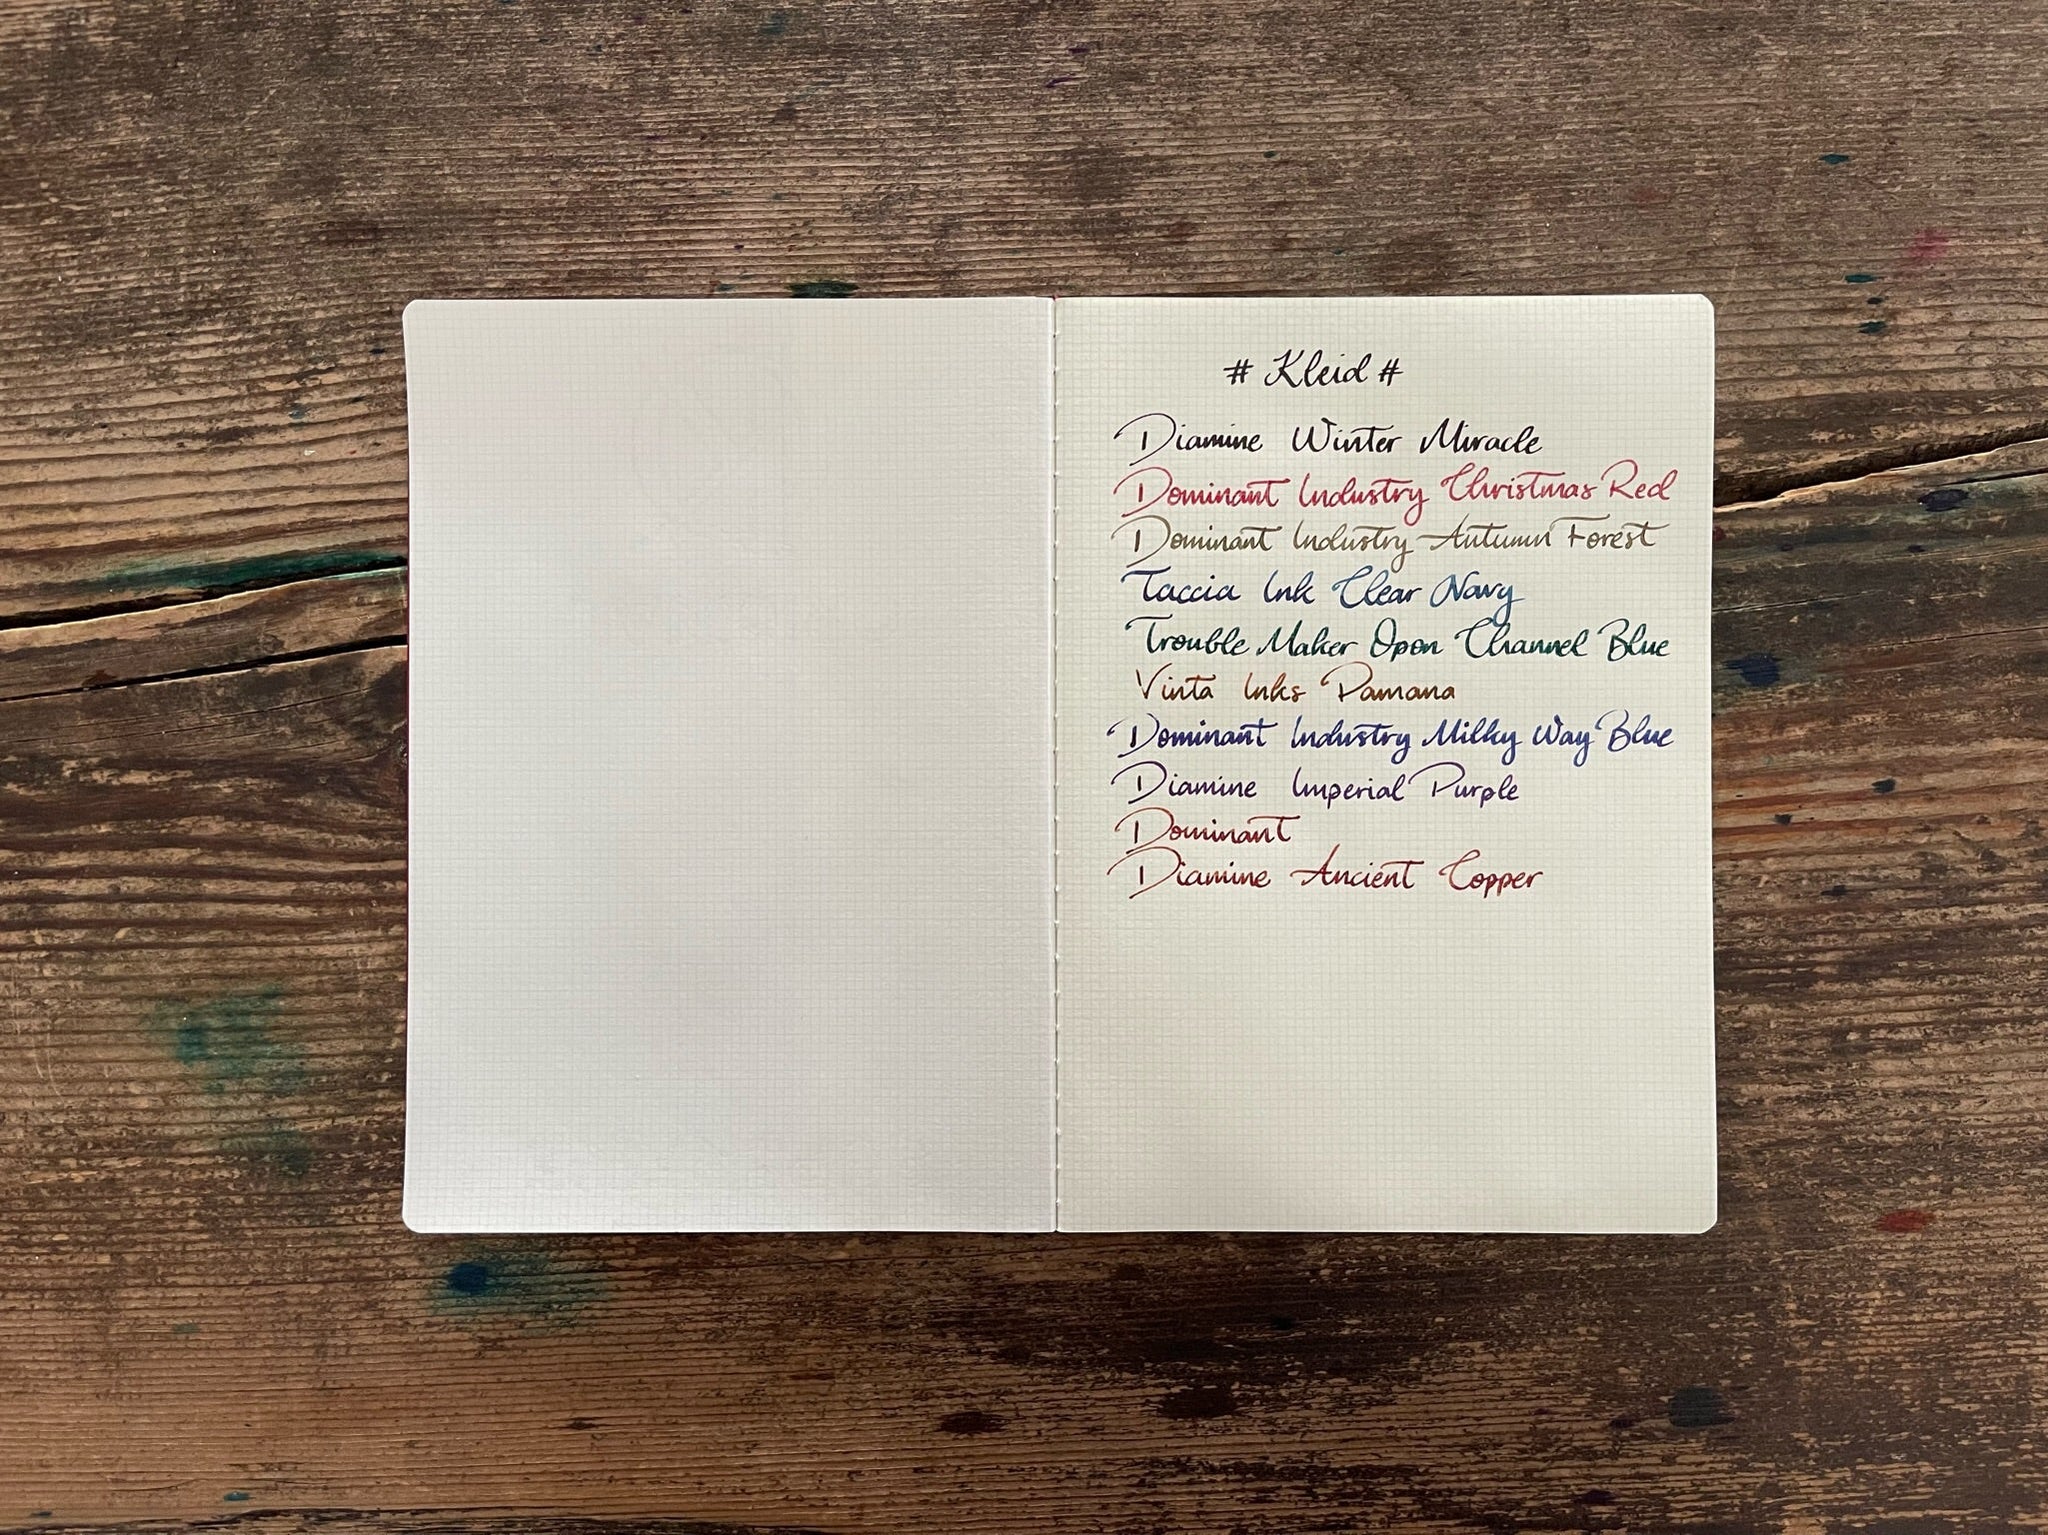 # Kleid #
Diamine Winter Miracle
Dominant Industry Christmas Red
Dominant Industry Autumn Forest
Taccia Ink Clear Navy
Trouble Maker Opon Channel Blue
Vinta Inks Pamana
Dominant Industry Milky Way Blue
Diamine Imperial Purple
Dominant
Diamine Ancient Copper